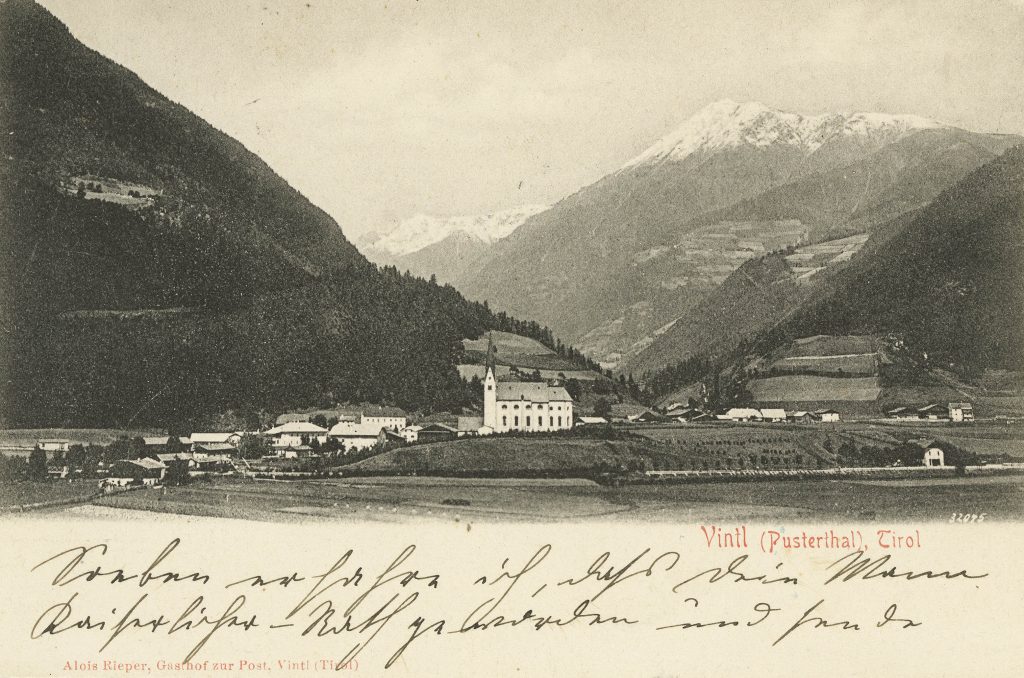 32045
Vintl (Pusterthal), Tirol
Soeben erfahre ich, dass Dein Mann
Kaiserlicher-Rath geworden ü. und sende
Alois Rieper, Gasthof zur Post, Vintl (Tirol)